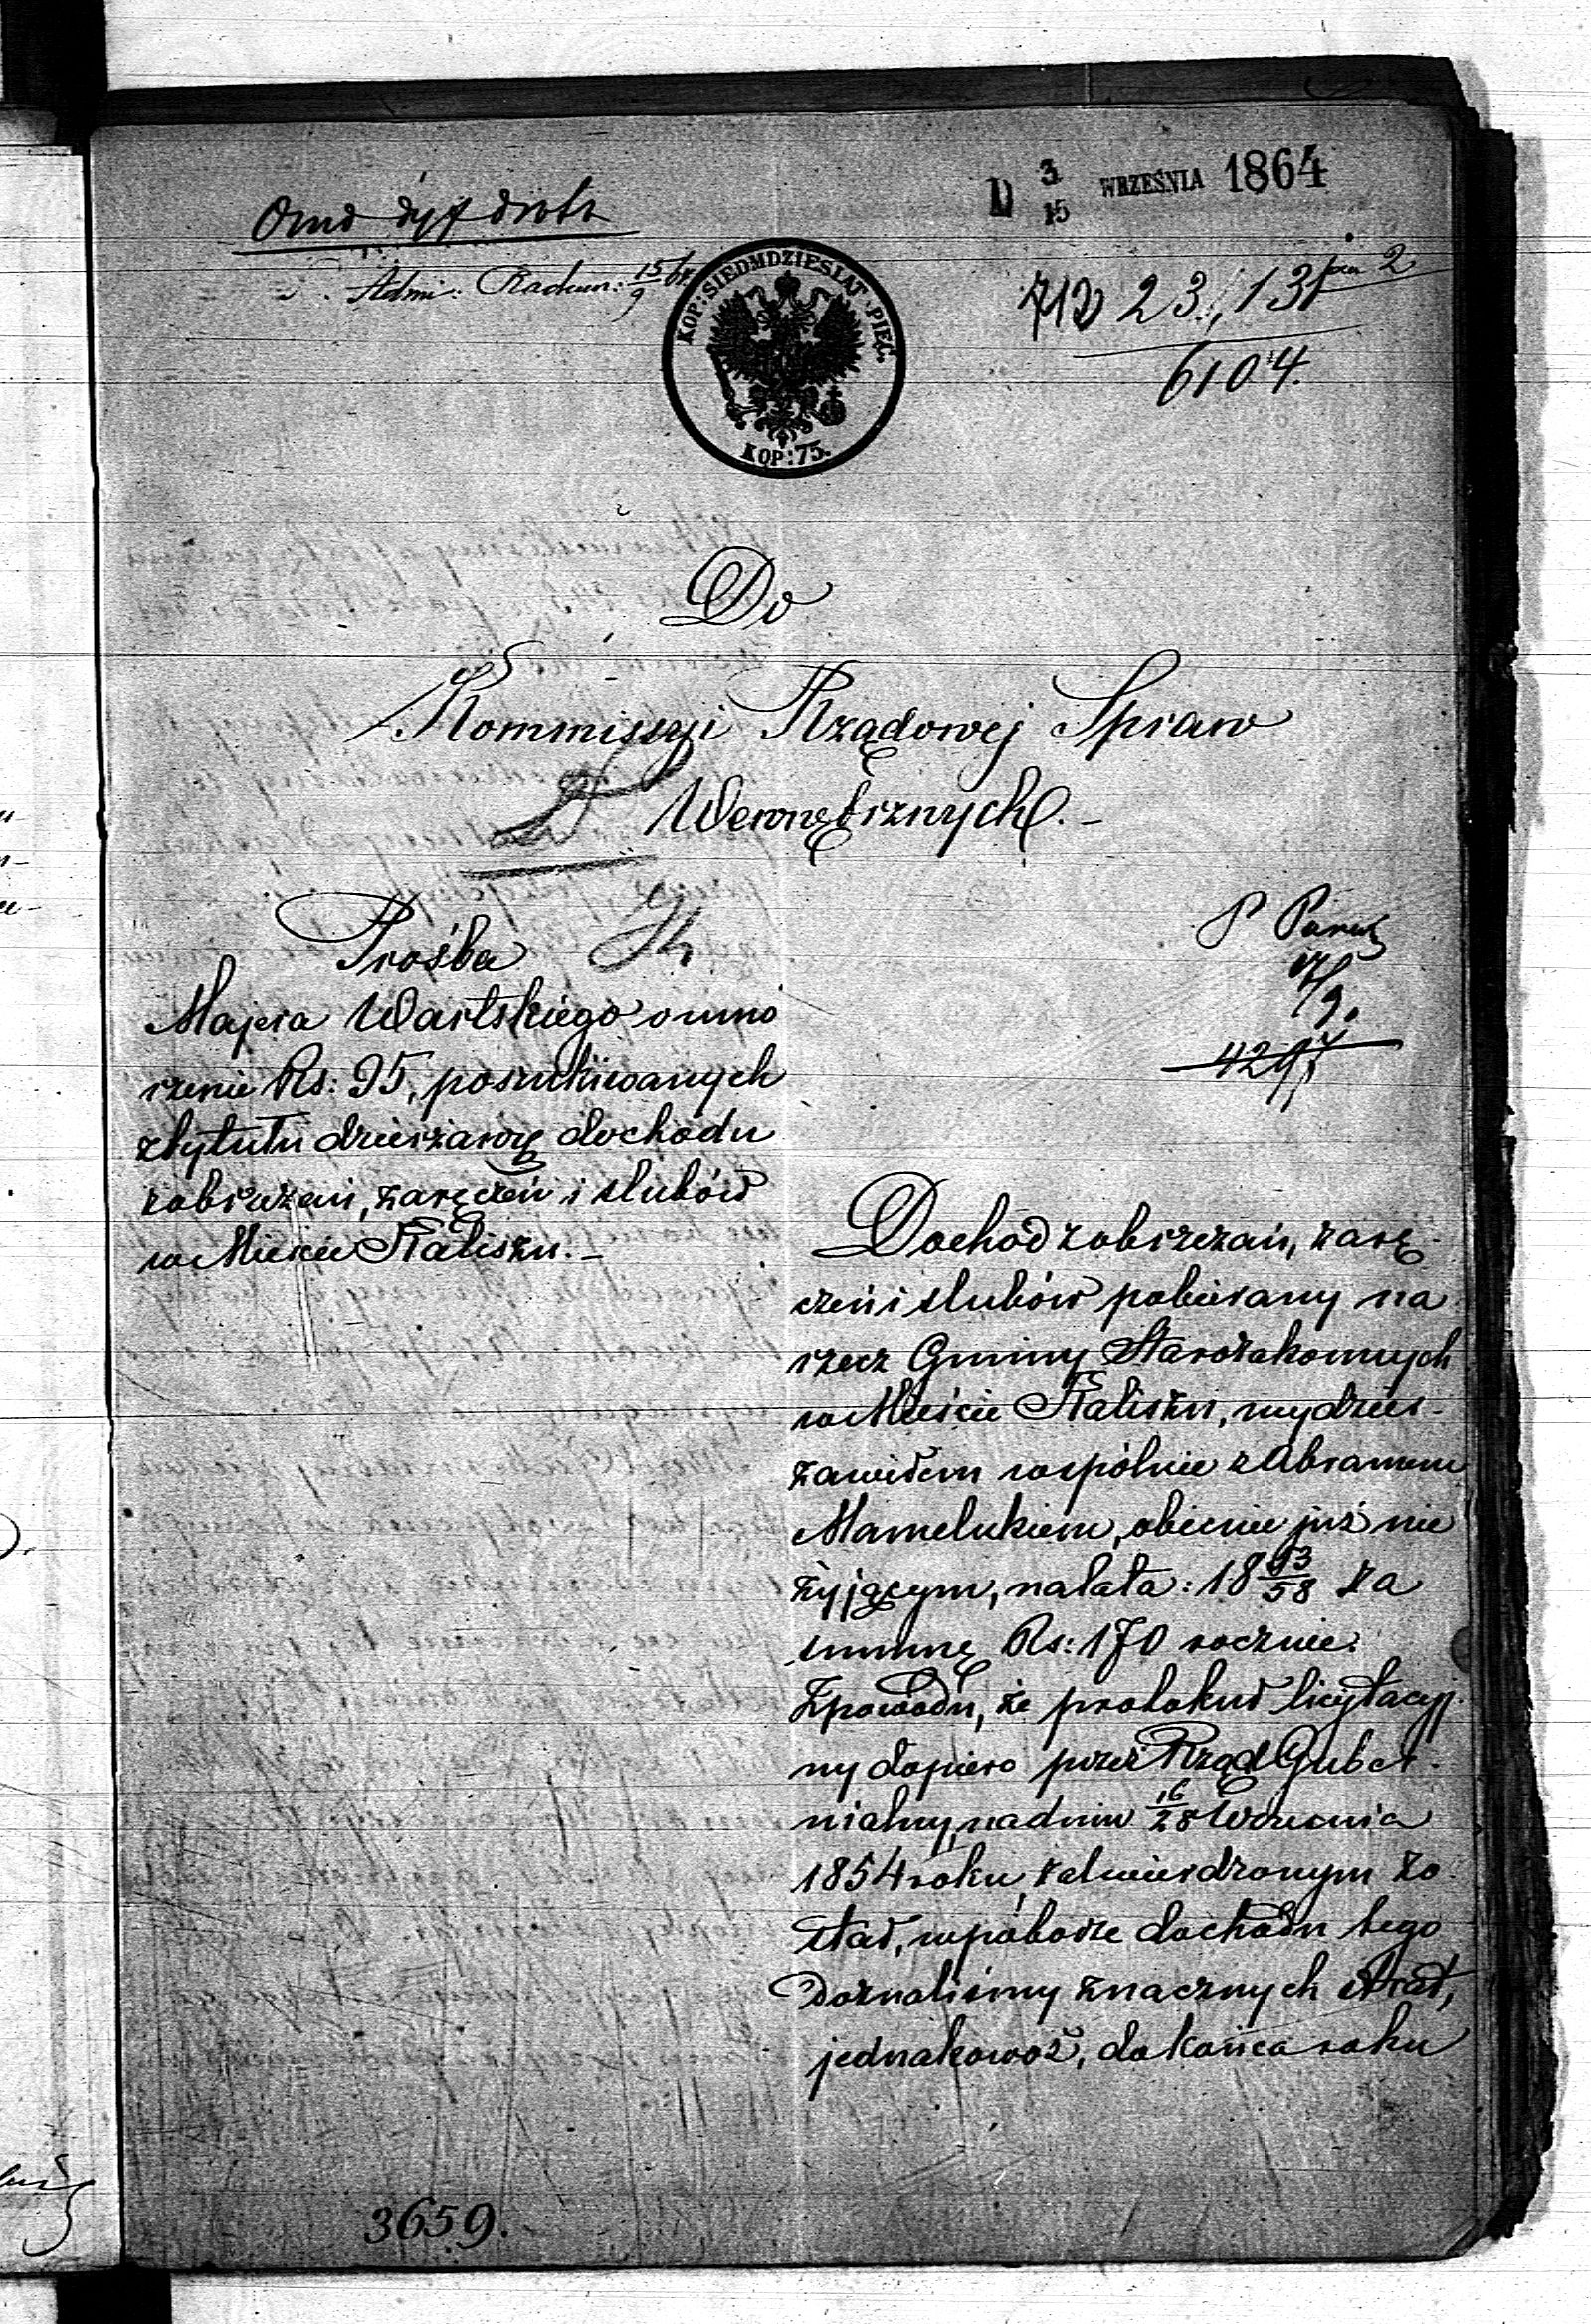 D 3/15 WRZEŚNIA 1864
Admi: Rachun: 15/9
23,131
6104.
KOP: SIEDMDZIESIĄT PIĘĆ.
KOP: 75.
Do
Kommissyi Rządowej Spraw
Wewnętrznych. –
Prośba
Majera Wartskiego o umo
rzenie Rs: 95, poszukiwanych
z tytułu dzierżawy dochodu
z obrzezań, zaręczeń i slubów
w Mieście Kaliszu. –
P
17/9.
Dochod z obrzezań, zarę-
czeń i slubów pobierany na
rzecz Gminy Starozakonnych
w Mieście Kaliszu, wydzier-
zawiłem wspólnie z Abramem
Mamelukiem, obecnie już nie
żyjącym, na lata: 18 53/58 za
summę Rs: 170 rocznie.
Z powodu, że protokuł licytacyj-
ny dopiero przez Rząd Guber-
nialny, na dniu 16/28 Wrzesnia
1854 roku, zatwierdzonym zo-
stał, w poborze dochodu tego
doznaliśmy znacznych strat,
jednakowoż, do końca roku
3659.